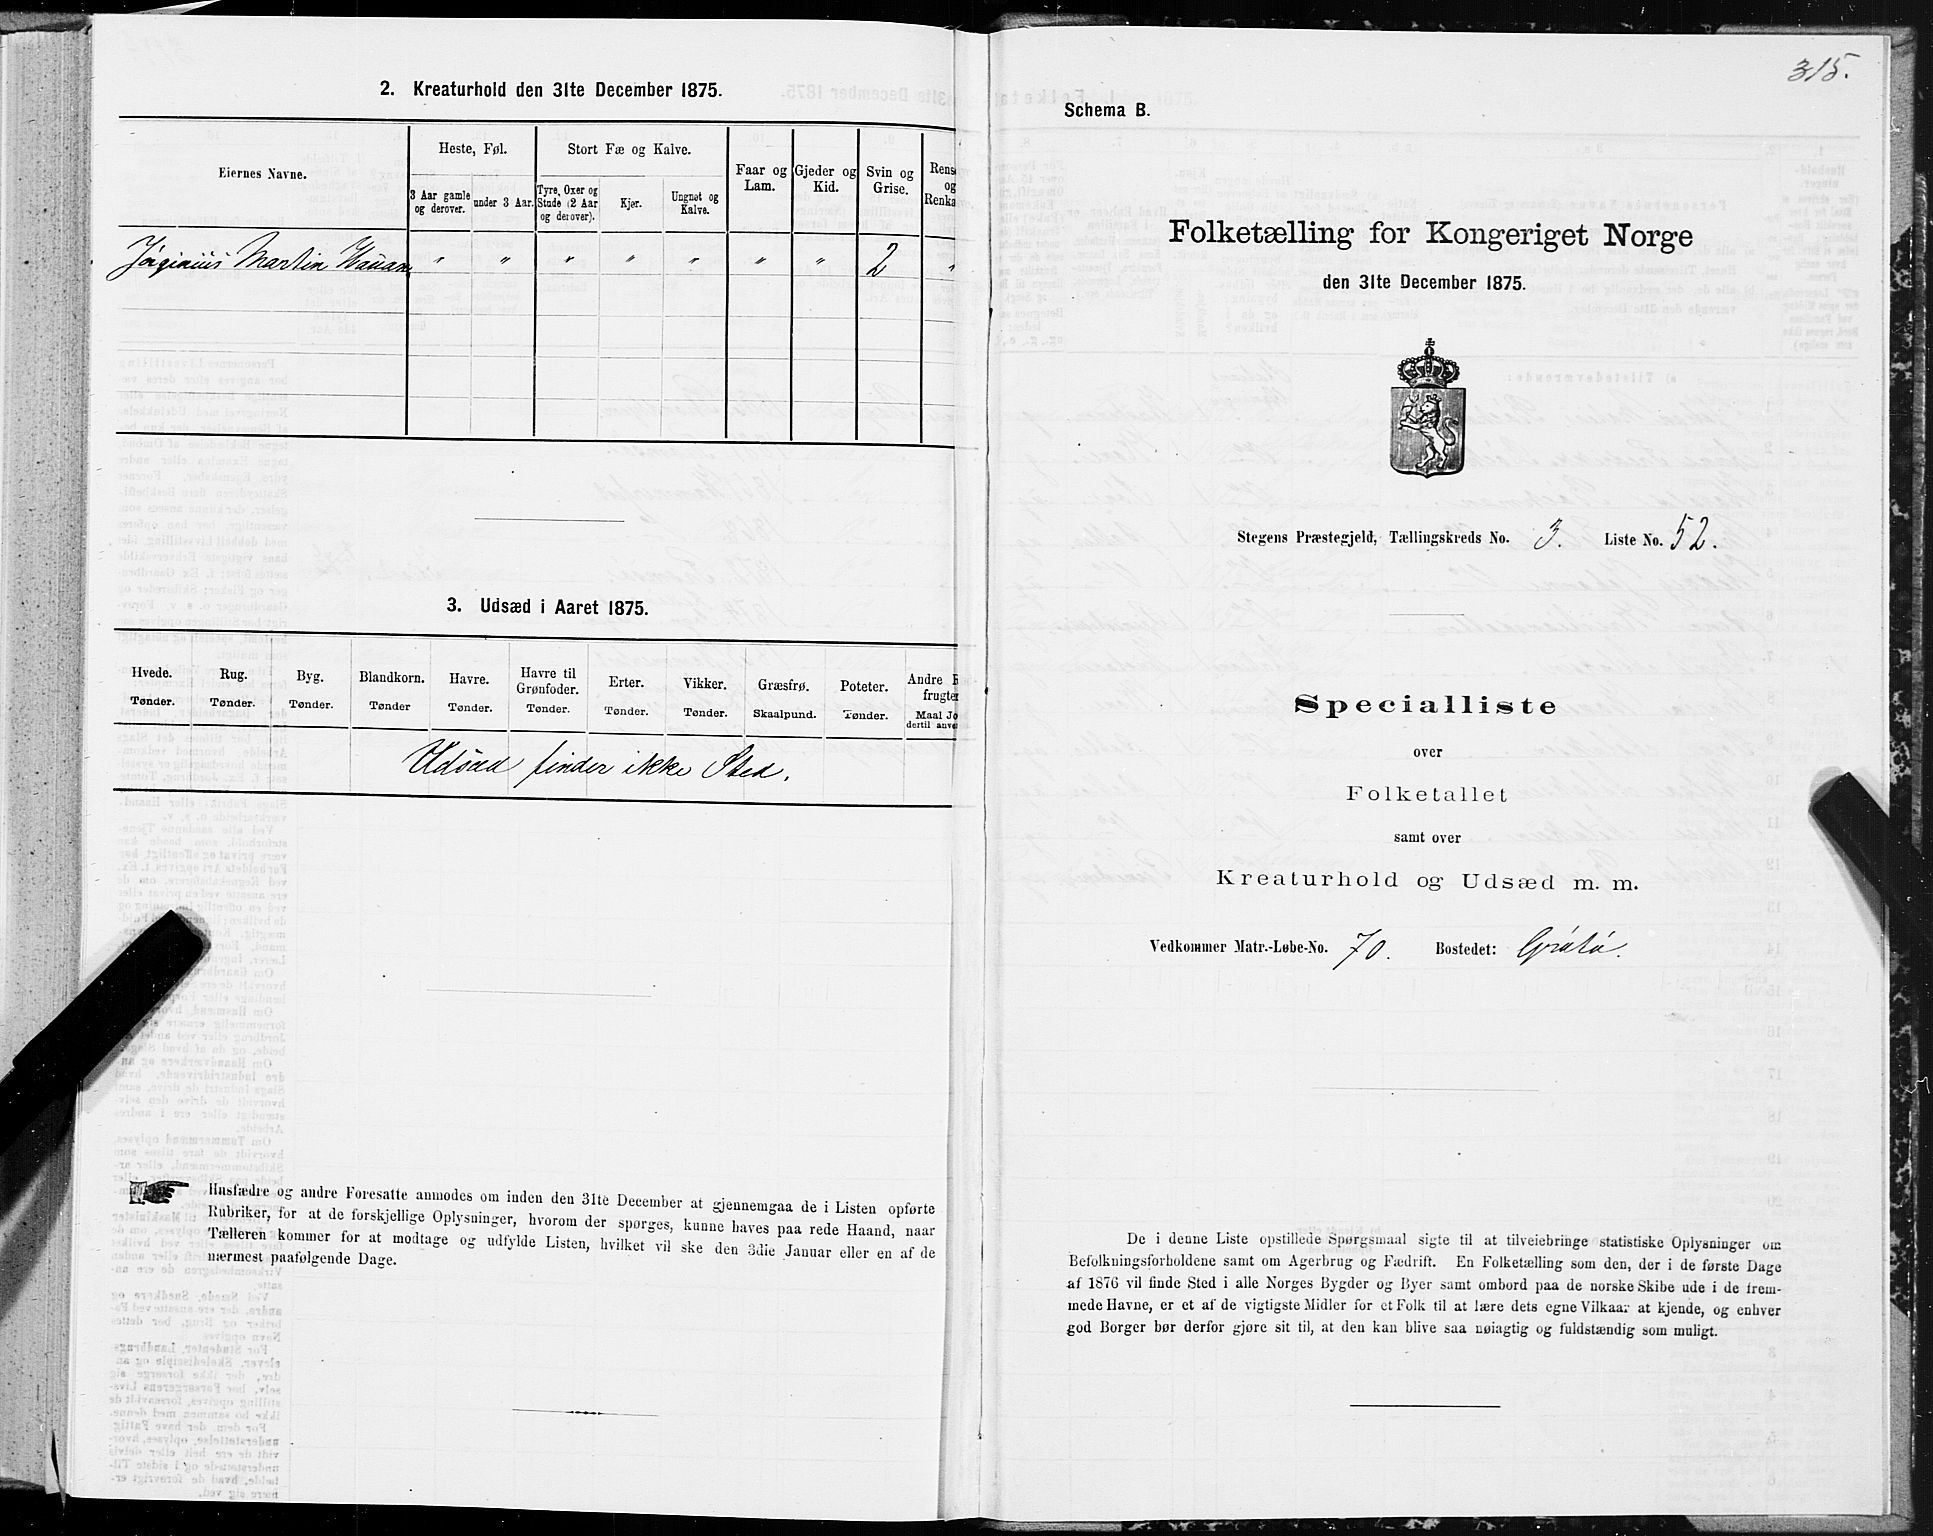 2. Kreaturhold den 31te December 1875.
Eiernes Navne.
Heste, Føl.
Stort Fæ og Kalve.
Faar og Lam.
Gjeder og Kid.
Svin og Grise.
3 Aar gamle og derover.
under 3 Aar.
Tyre, Oxer og Stude (2 Aar og derover).
Kjer.
Ungnøt og Kalve.
Martin " " " " " " " 2 "
3. Udsæd i Aaret 1875.
Hvede. Rug. Byg. Blandkorn. Havre. Havre til Grønfoder. Erter. Vikker. Græsfrø. Poteter. Andre
Tønder. Tønder. Tønder. Tønder Tønder. Tønder. Tønder. Tønder. Skaalpund. Tønder. Maal
Udsæd finder ikke Sted.
Husfædre og andre Foresatte anmodes om inden den 31te December at gjennemgaa de i Listen opførte
Rubriker, for at de forskjellige Oplysninger, hvorom der spørges, kunne haves paa rede Haand, naar
Tælleren kommer for at modtage og udfylde Listen, hvilket vil ske den 3die Januar eller en af de
nærmest paafølgende Dage.
315.
Schema B.
Folketælling for Kongeriget Norge
den 31te December 1875.
Stegens Præstegjeld, Tællingskreds No. 3. Liste No. 52.
Specialliste
over
Folketallet
samt over
Kreaturhold og Udsæd m. m.
Vedkommer Matr.-Løbe-No. 70. Bostedet: Grótó.
De i denne Liste opstillede Spørgsmaal sigte til at tilveiebringe statistiske Oplysninger om
Befolkningsforholdene samt om Agerbrug og Fædrift. En Folketælling som den, der i de første Dage
af 1876 vil finde Sted i alle Norges Bygder og Byer samt ombord paa de norske Skibe ude i de frem-
mede Havne, er et af de vigtigste Midler for et Folk til at lære dets egne Vilkaar at kjende, og enhver
god Borger bør derfor gjøre sit til, at den kan blive saa nøiagtig og fuldstændig som muligt.